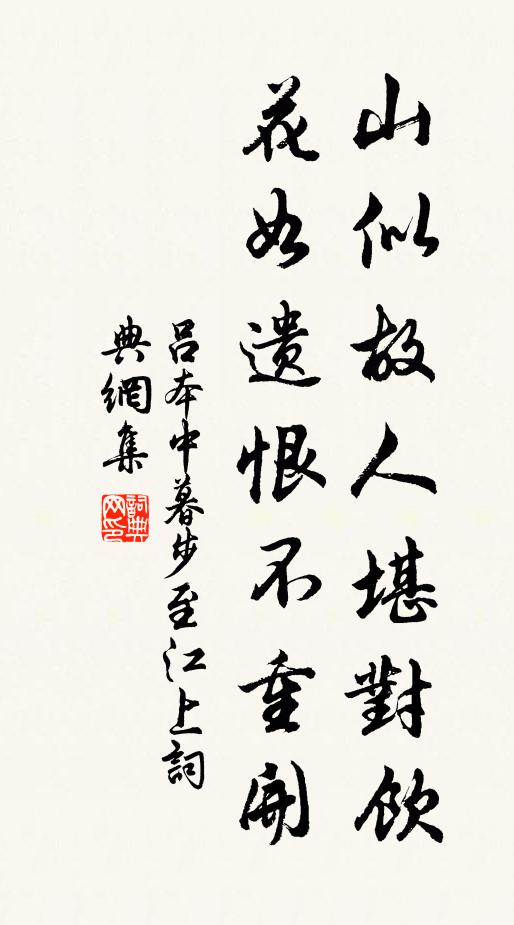 山似故人堪對飲
花如遺恨不重開
呂本中暮步至江上詞
典網集
詞典網印